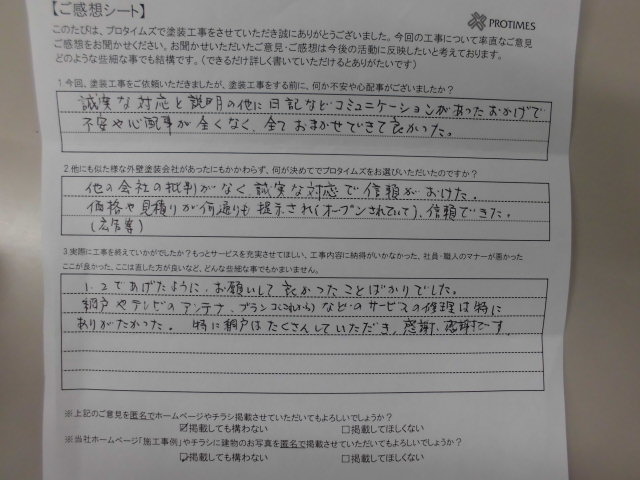 【ご感想シート】
PROTIMES
このたびは、プロタイムズで塗装工事をさせていただき誠にありがとうございました。今回の工事について率直なご意見
ご感想をお聞かせください。お聞かせいただいたご意見・ご感想は今後の活動に反映したいと考えております。
どのような些細な事でも結構です。（できるだけ詳しく書いていただけるとありがたいです）
1 今回、塗装工事をご依頼いただきましたが、塗装工事をする前に、何か不安や心配事がございましたか？
誠実な対応と説明の他に日記などコミュニケーションがあったおかげで
不安や心配事が全くなく、全ておまかせできて良かった。
2 他にも似た様な外壁塗装会社があったにもかかわらず、何が決めてでプロタイムズをお選びいただいたのですか？
他の会社の批判がなく、誠実な対応で信頼がおけた。
価格や見積りが何通りも提示され（オープンされていて）、信頼できた。
（広告等）
3 実際に工事を終えていかがでしたか？もっとサービスを充実させてほしい、工事内容に納得がいかなかった、社員・職人のマナーが悪かった
ここが良かった、ここは直した方が良いなど、どんな些細な事でもかまいません。
1、2であげたように、お願いして良かったことばかりでした。
網戸やテレビのアンテナ、ブランコ（これから）などのサービスの修理は特に
ありがたかった。 特に網戸はたくさんしていただき、感謝、感謝です。
※上記のご意見を匿名でホームページやチラシ掲載させていただいてもよろしいでしょうか？
☑掲載しても構わない □掲載してほしくない
※当社ホームページ「施工事例」やチラシに建物のお写真を匿名で掲載させていただいてもよろしいでしょうか？
☑掲載しても構わない □掲載してほしくない